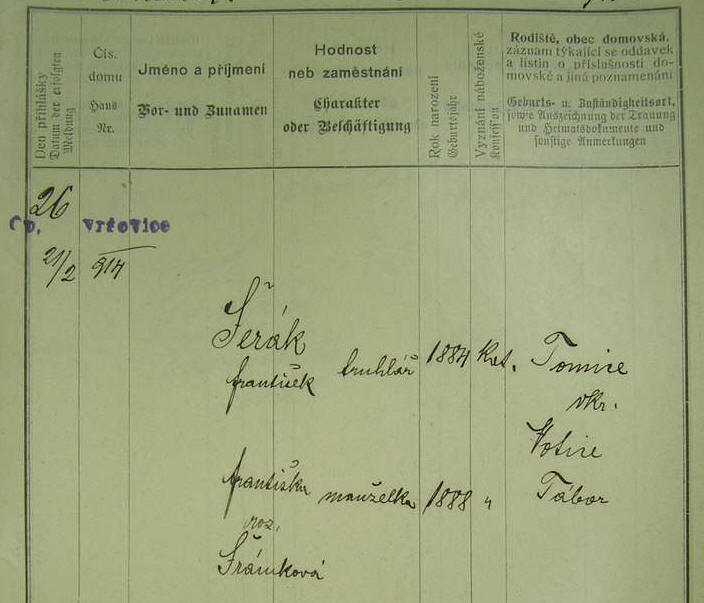 Den přihlášky
Datum der erfolgten
Meldung
Čís.
domu
Haus
Nr.
Jméno a příjmení
Vor- und Zunamen
Hodnost
neb zaměstnání
Charakter
oder Beschäftigung
Rok narození
Geburtsjahr
Vyznání náboženské
Konfession
Rodiště, obec domovská,
záznam týkající se oddavek
a listin o příslušnosti do-
movské a jiná poznamenání
Geburts- u. Zuständigkeitsort,
sowie Auszeichnung der Trauung
und Heimatsdokumente und
sonstige Anmerkungen
26
Čp. Vršovice
21/2 914
Šerák
František truhlář 1884 kat. Tomice
okr.
Votice
Františka manželka 1888 " Tábor
roz.
Šrámková